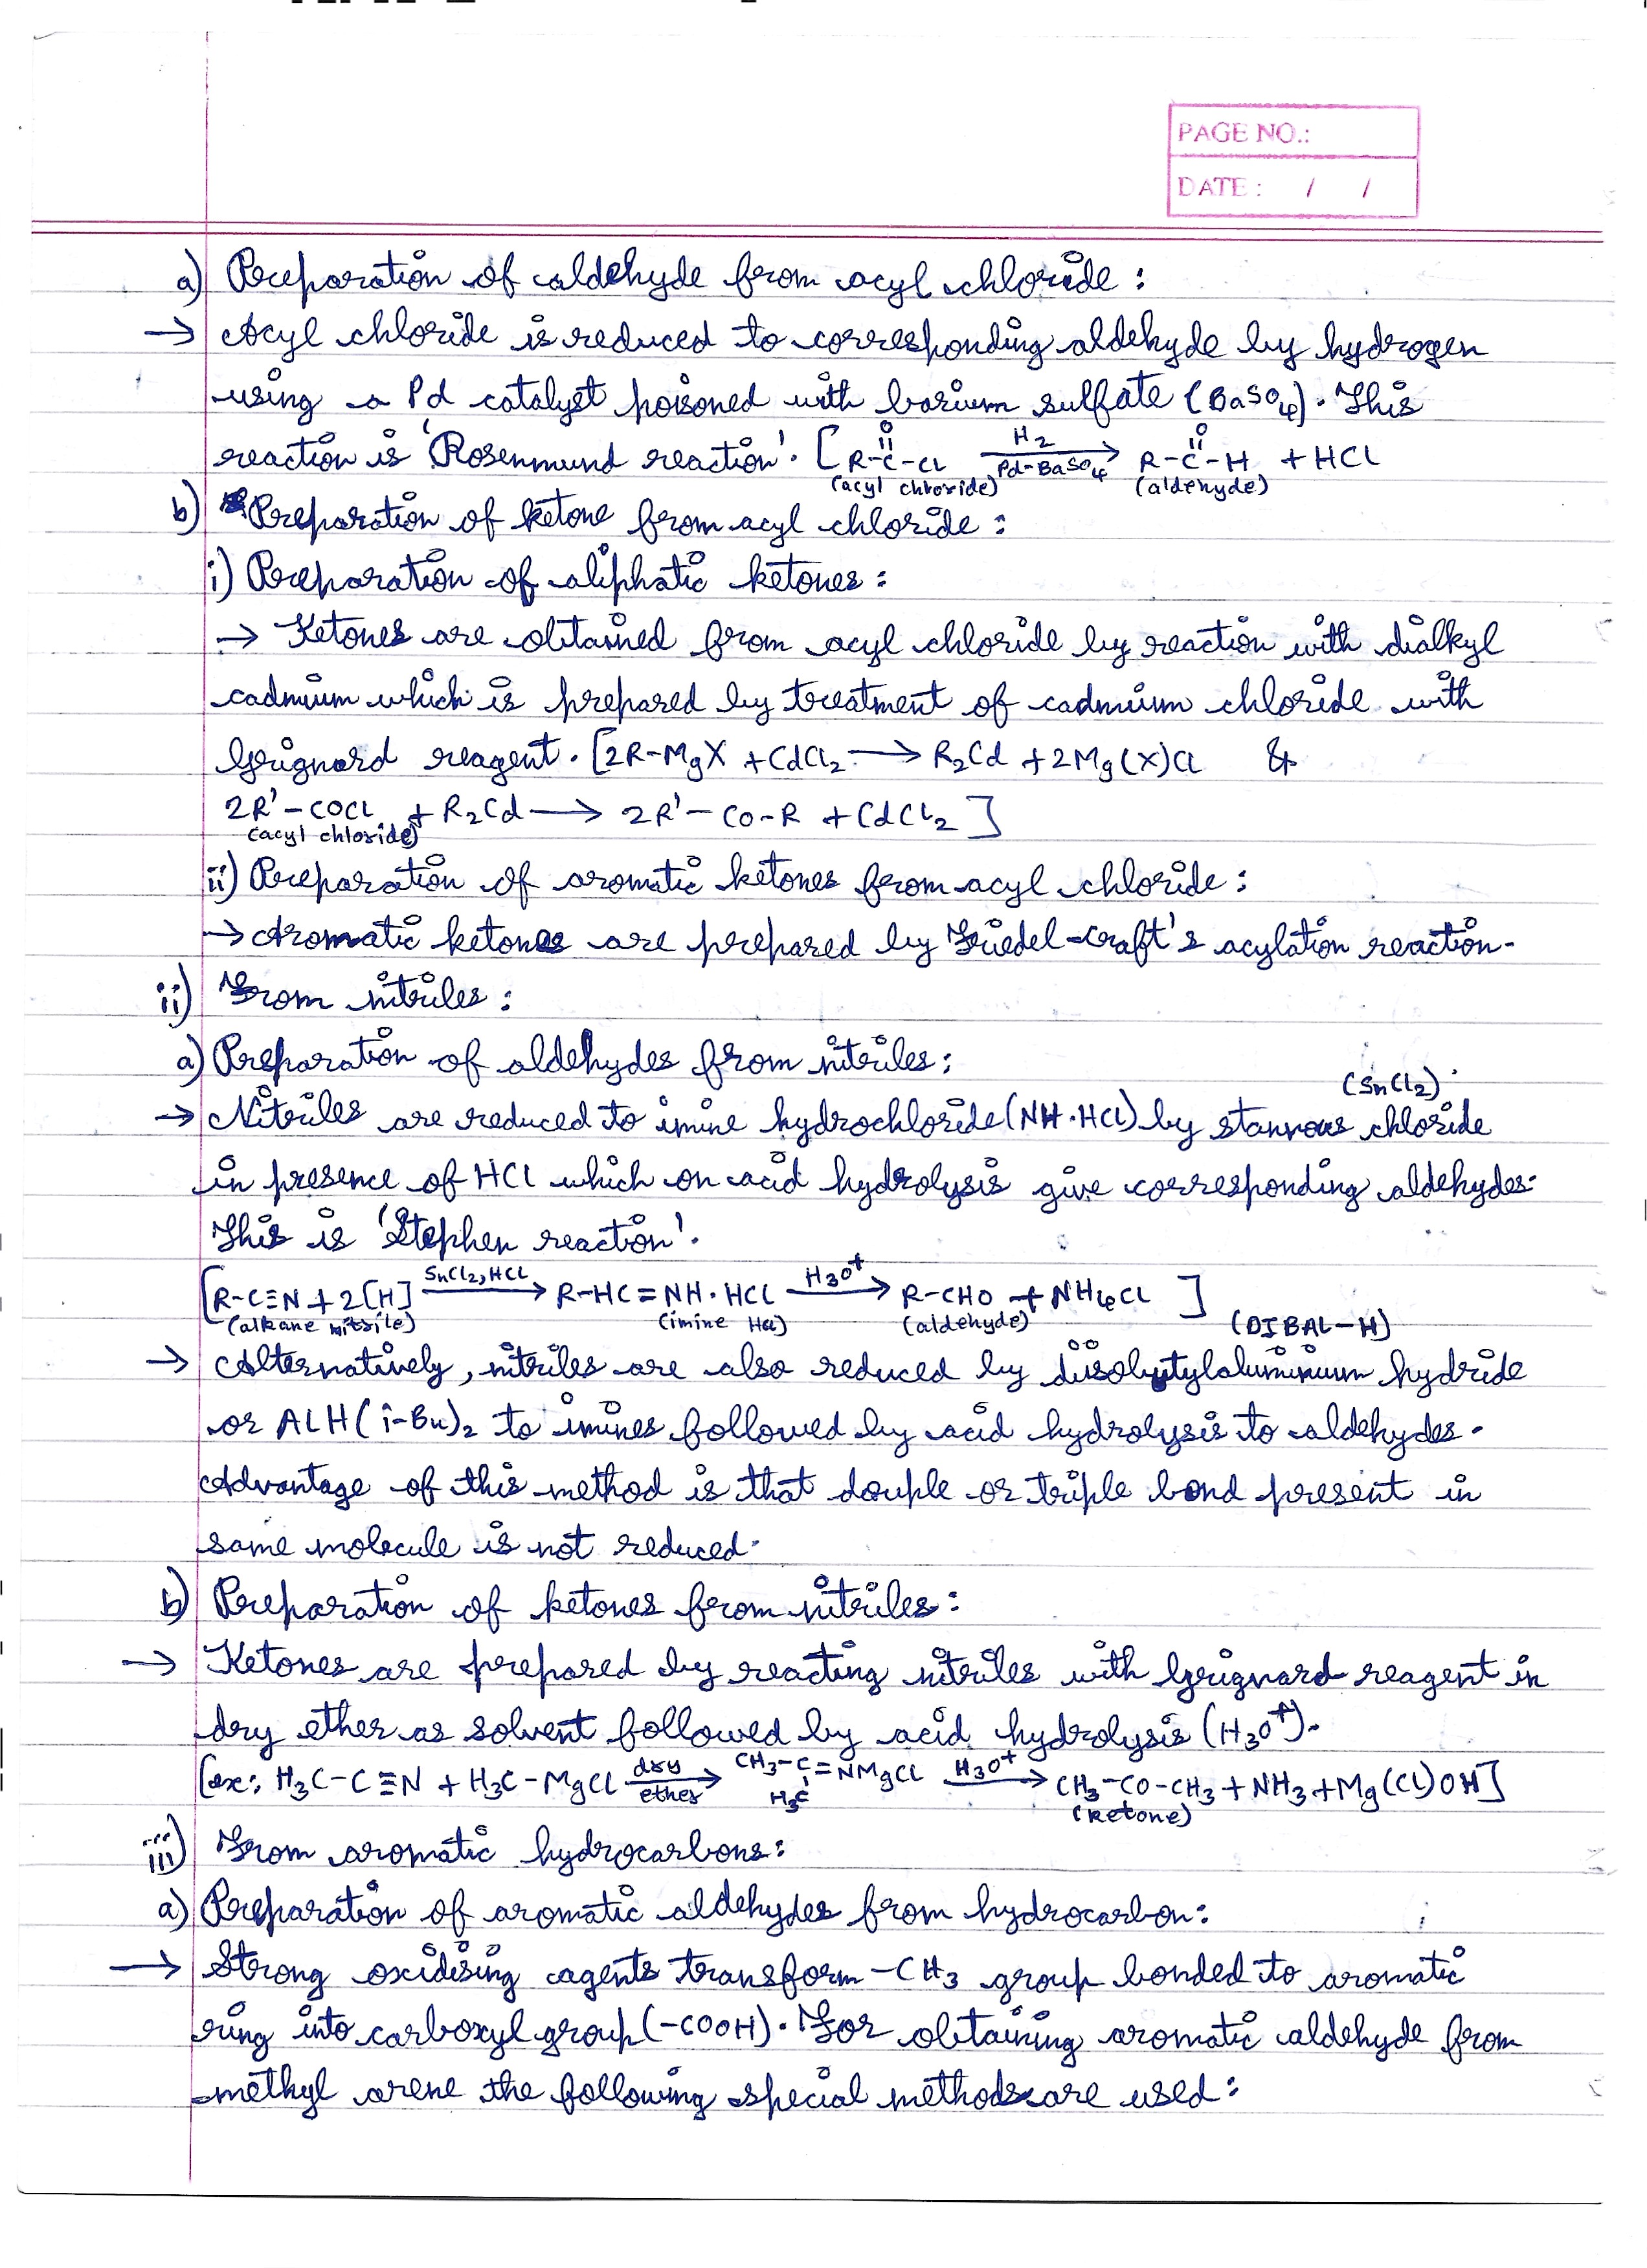 PAGE NO.:
DATE : / /
a) Preparation of aldehyde from acyl chloride :
→ Acyl chloride is reduced to corresponding aldehyde by hydrogen
using a Pd catalyst poisoned with barium sulfate (BaSO4). This
reaction is 'Rosenmund reaction'. [R-C(=O)-Cl —H2/Pd-BaSO4→ R-C(=O)-H + HCl
(acyl chloride) (aldehyde)
b) Preparation of ketone from acyl chloride :
i) Preparation of aliphatic ketones :
→ Ketones are obtained from acyl chloride by reaction with dialkyl
cadmium which is prepared by treatment of cadmium chloride with
Grignard reagent. [2R-MgX + CdCl2 → R2Cd + 2Mg(X)Cl &
2R'-COCl + R2Cd → 2R'-CO-R + CdCl2]
(acyl chloride)
ii) Preparation of aromatic ketones from acyl chloride :
→ Aromatic ketones are prepared by Friedel-Craft's acylation reaction.
ii) From nitriles :
a) Preparation of aldehydes from nitriles :
(SnCl2)
→ Nitriles are reduced to imine hydrochloride (NH·HCl) by stannous chloride
in presence of HCl which on acid hydrolysis give corresponding aldehydes.
This is 'Stephen reaction'.
[R-C≡N + 2[H] —SnCl2, HCl→ R-HC=NH·HCl —H3O+→ R-CHO + NH4Cl ]
(alkane nitrile) (imine HCl) (aldehyde) (DIBAL-H)
→ Alternatively, nitriles are also reduced by diisobutylaluminium hydride
or AlH(i-Bu)2 to imines followed by acid hydrolysis to aldehydes.
Advantage of this method is that douple or triple bond present in
same molecule is not reduced.
b) Preparation of ketones from nitriles :
→ Ketones are prepared by reacting nitriles with Grignard reagent in
dry ether as solvent followed by acid hydrolysis (H3O+).
[ex: H3C-C≡N + H3C-MgCl —dry ether→ CH3-C(H3C)=NMgCl —H3O+→ CH3-CO-CH3 + NH3 + Mg(Cl)OH]
(ketone)
iii) From aromatic hydrocarbons :
a) Preparation of aromatic aldehydes from hydrocarbon :
→ Strong oxidising agents transform -CH3 group bonded to aromatic
ring into carboxyl group (-COOH). For obtaining aromatic aldehyde from
methyl arene the following special methods are used :